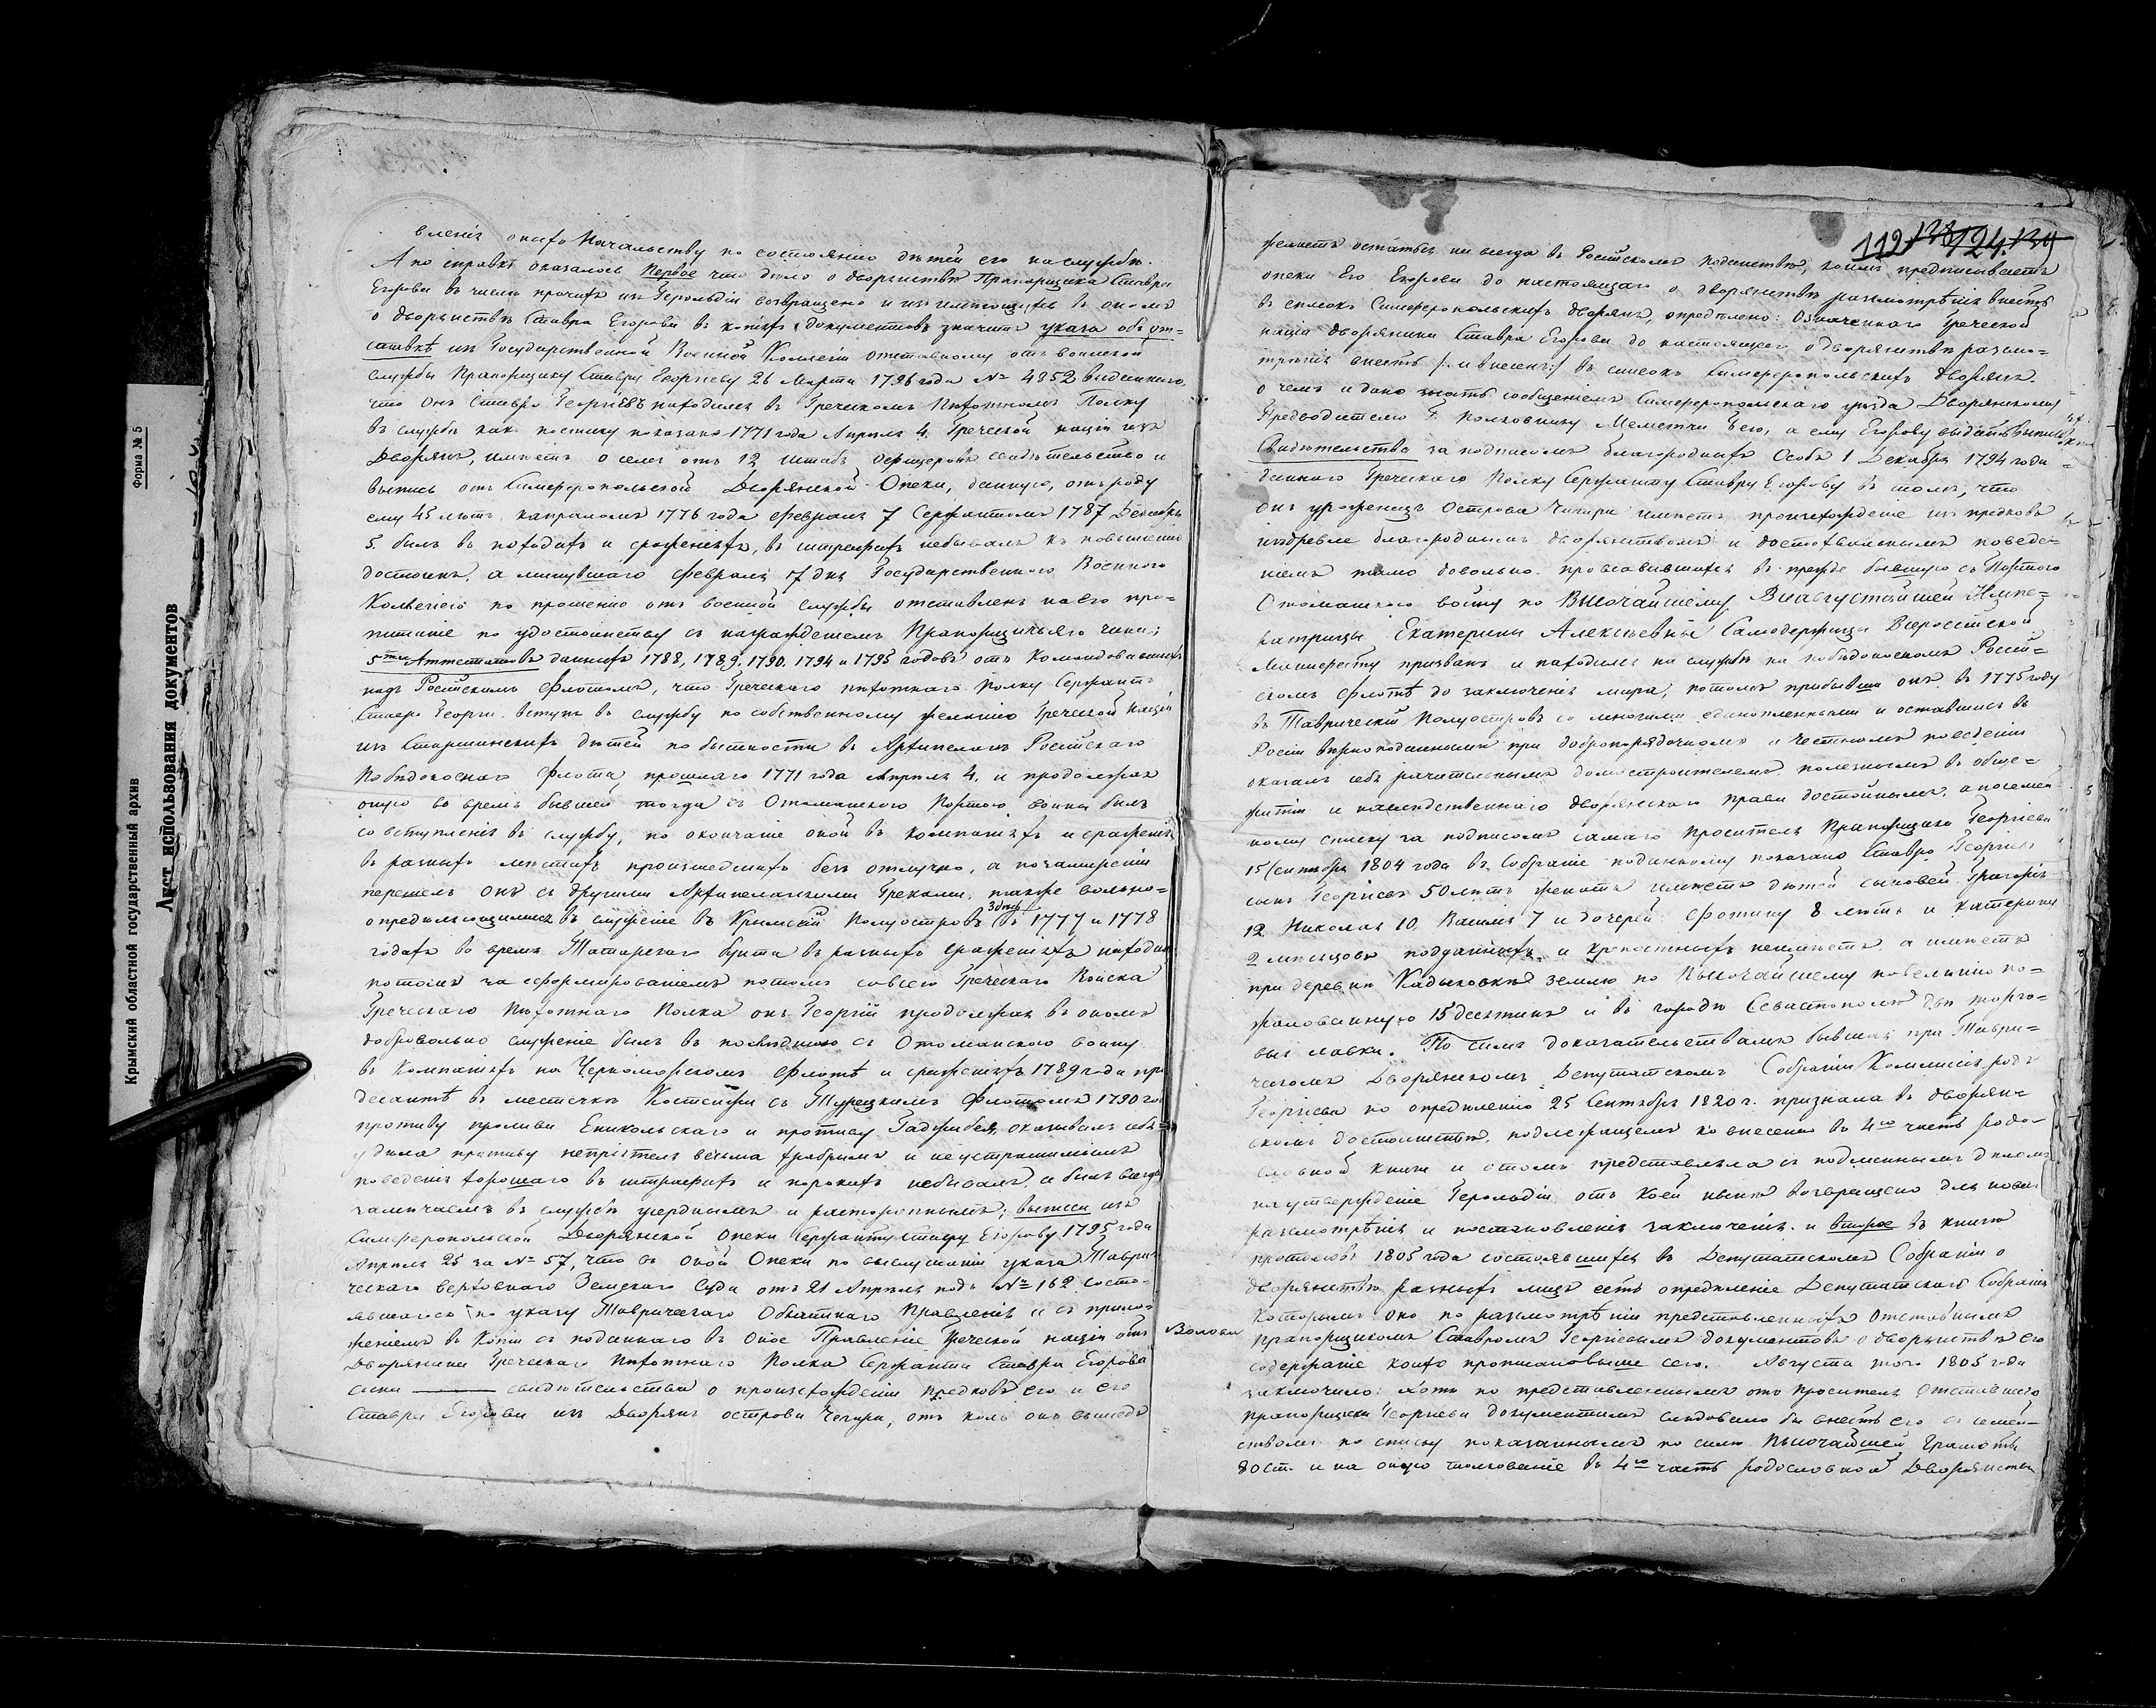 вленія онаго Начальству по состоянію дѣтей его на службѣ.
А по справкѣ оказалось Первое что дѣло о дворянствѣ Прапорщика Ставра
Егорова въ числѣ прочихъ изъ Герольдіи возвращено и изъ имѣющихся въ ономъ
о дворянствѣ Ставра Егорова въ копіяхъ документовъ значитъ указа объ от=
ставкѣ изъ Государственной Военной Коллегіи отставному отъ воинской
службы Прапорщику Ставру Георгіеву 26 Марта 1796 года № 4852 выданнаго,
что онъ Ставро Георгіевъ находился въ Греческомъ Пѣхотномъ Полку
въ службѣ какъ по списку показано 1771 года Апрѣля 4. Греческой націи изъ
Дворянъ, имѣетъ о себѣ отъ 12 Штабъ Офицеровъ свидѣтельство и
выпись отъ Симферопольской Дворянской Опеки, данную, отъ роду
ему 45 лѣтъ, капраломъ 1776 года февраля 7 Сержантомъ 1787 Декабря
5. былъ въ походахъ и сраженіяхъ, въ штрафахъ небывалъ къ повышенію
достоинъ, а минувшаго февраля 17 дня Государственною Военною
Коллегіею по прошенію отъ военной службы отставленъ на его про=
питаніе по удостоинству съ награжденіемъ Прапорщичьяго чина;
5ти Аттестатовъ данныхъ 1788, 1789. 1790. 1794 и 1795 годовъ отъ Командовавшихъ
надъ Россійскимъ флотомъ, что Греческаго пѣхотнаго полку Сержантъ
Ставро Георги. вступя въ службу по собственному желанію Греческой націи
изъ Старшинскихъ дѣтей по бытности въ Архипелагѣ Россійскаго
Побѣдоноснаго флота, прошлаго 1771 года Апрѣля 4. и продолжая
оную во время бывшей тогда съ Отоманскою Портою войны былъ
со вступленія въ службу, по окончаніе оной въ компаніяхъ и сраженіяхъ
въ разныхъ мѣстахъ произшедшихъ безъ отлучно, а по замиреніи
перешелъ онъ съ другими Архипелагскими Греками, также вольно=
опредѣляющимися въ служеніе въ Крымскій Полуостровъ Здѣсь въ 1777 и 1778
годахъ во время Татарскаго бунта въ разныхъ сраженіяхъ находился
потомъ за сформированіемъ потомъ совсего Греческаго Войска
Греческаго Пѣхотнаго Полка онъ Георгій продолжая въ ономъ
добровольно служеніе былъ въ послѣднюю съ Отоманскою войну
въ Компаніяхъ на Черноморскомъ флотѣ и сраженіяхъ 1789 года при
десантѣ въ местечкѣ Костенжи съ Турецкимъ флотомъ 1790 го
противу пролива Еникольскаго и противу Гаджибея, оказывалъ себя
у дѣла противу непріятеля весьма храбрымъ и неустрашимымъ
поведенія хорошаго въ штрафахъ и порокахъ небывалъ, а былъ всегда
замѣчаемъ въ службѣ усерднымъ и расторопнымъ; выписи изъ
Симферопольской Дворянской Опеки Сержанту Ставру Егорову 1795 года
Апрѣля 25 за № 57, что въ оной Опеки по выслушаніи указа Таври=
ческаго верховнаго Земскаго Суда отъ 21 Апрѣля подъ № 162 состо=
явшагося по указу Таврическаго Областнаго Правленія и съ прило=
женіемъ въ Копіи съ поданнаго въ оное Правленіе Греческой націи отъ
Дворянина Греческаго Пѣхотнаго Полка Сержанта Ставра Егорова
сына свидѣтельства о произхожденіи предковъ его и его
Ставра Егорова изъ Дворянъ острова Чегира, отъ коль онъ вышедъ
119 138 124. 134
желаетъ остаться на всегда въ Россійскомъ подданствѣ, коимъ предписываетъ
опеки Его Егорова до настоящаго о дворянствѣ разсмотрѣнія внесть
въ списокъ Симферопольскихъ дворянъ, опредѣлено: Означеннаго Греческой
націи дворянина Ставра Егорова до настоящаго о дворянствѣ разсмо=
трѣнія внесть /: и внесенъ:/ въ списокъ Симферопольскихъ Дворянъ.
о чемъ и дано знать сообщеніемъ Симферопольскаго уѣзда Дворянскому
Предводителю Г. Полковнику Меметши Бею, а ему Егорову выдать выпись
Свидѣтельства за подписомъ благородныхъ Особъ 1 Декабря 1794 года
даннаго Греческаго Полку Сержанту Ставру Егорову въ томъ, что
онъ уроженецъ Острова Чигири имѣетъ произхожденіе изъ предковъ
издревле благороднымъ дворянствомъ и достохвальнымъ поведе=
ніемъ тамо довольно прославившихся въ прежде бывшую съ Портою
Отоманскою войну по Высочайшему Всеавгустѣйшей Импе=
ратрицы Екатерины Алексѣевны Самодержицы Всероссійской
Манифесту призванъ и находился на службѣ на побѣдоносномъ Россій=
скомъ флотѣ до заключенія мира, потомъ прибывши онъ въ 1775 году
въ Таврическій Полуостровъ со многими единоплеменными и оставшись въ
Россіи вѣрноподданнымъ при добропорядочномъ и честномъ поведеніи
оказалъ себя рачительнымъ домостроителемъ, полезнымъ въ обще=
житіи и наслѣдственнаго дворянскаго права достойнымъ, а по семей=
ному списку за подписомъ самаго просителя Прапорщика Георгіева
15 Сентября 1804 года въ Собраніе поданному показано Ставро Георгіевъ
сынъ Георгіевъ 50 лѣтъ женатъ имѣетъ дѣтей сыновей Григорія
12 Николая 10, Василія 7 и дочерей: Фотину 8 лѣтъ и Катерину
2 мѣсяцовъ подданныхъ и крѣпостныхъ неимѣетъ, а имѣетъ
при деревни Кадыковкѣ землю по Высочайшему повелѣнію по=
жалованную 15 десятинъ и въ городѣ Севастополѣ двѣ торго=
выя лавки. По симъ доказательствамъ бывшая при Таври=
ческомъ Дворянскомъ Депутатскомъ Собраніи Коммисія родъ
Георгіева по опредѣленію 25 Сентября 1820 г. признала въ дворян=
скомъ достоинствѣ, подлежащемъ ко внесенію въ 4ю часть родо=
словной книги и отомъ представляла съ подлиннымъ дѣломъ
на утвержденіе Герольдіи, отъ Коей нынѣ возвращено для новаго
разсмотрѣнія и постановленія заключенія. и второе въ книгѣ
протоколъ 1805 года состоявшихся въ Депутатскомъ Собраніи о
дворянствѣ разныхъ лицъ есть опредѣленіе Депутатскаго Собранія
Которымъ оно по разсмотрѣніи представленныхъ Отставнымъ
прапорщикомъ Ставромъ Георгіевымъ документовъ о дворянствѣ его
содержаніе коихъ прописано выше сего. Августа того 1805 года
заключило: хотя по представленнымъ отъ просителя Отставнаго
прапорщика Георгіева документамъ слѣдовало бы внесть его съ семей=
ствомъ по списку показаннымъ по силѣ Высочайшей Грамоты
80 ст. и на оную толкованіе въ 4ю часть родословной Дворянства
Крымский областной государственный архив
Форма № 5
Лист использования документов